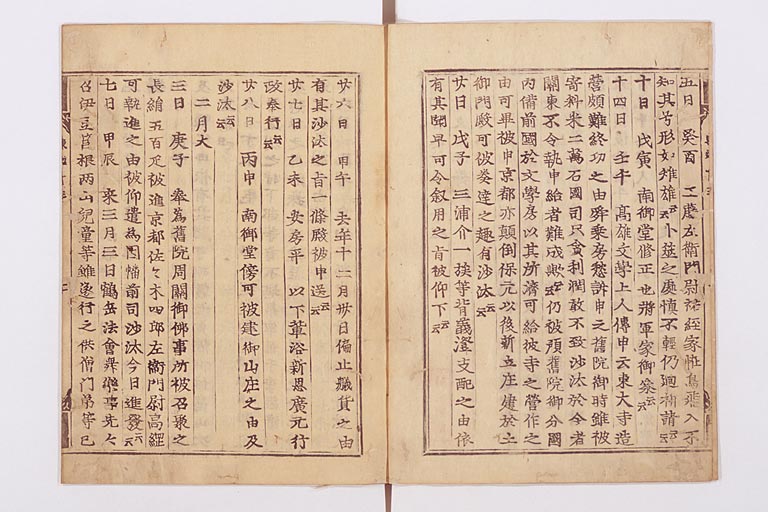 五日 癸酉 工藤左衛門尉祐經家恠鳥飛入不
知其号形如雉雄云云卜筮之處愼不輕仍廻祈請云云
十日 戊寅 南御堂修正也將軍家御參云云
十四日 壬午 高雄文學上人傳申云東大寺造
營頗難終功之由舜乘房愁訴申之舊院御時雖被
寄料米二萬石國司只貪利潤敢不致沙汰於今者
關東不令執申給者難成歟云云仍被預舊院御分國
内備前國於文學房以其所濟可給彼寺之營作之
由可畢被申京都亦顛倒保元以後新立庄建於土
御門殿可被奏達之趣有沙汰云云
廿日 戊子 三浦介一族等背義澄支配之由依
有其聞早可令叙用之旨被仰下云云
廿六日 甲午 去年十二月卅日備止職貨之由
有其沙汰之旨一條殿被申送云云
廿七日 乙未 安房平 以下輩浴新恩廣元行
政奉行云云
廿八日 丙申 南御堂傍可被建御山庄之由及
沙汰云云
及二月大
三日 庚子 奉爲舊院周闋御佛事所被召聚之
長絹五百疋被進京都佐々木四郎左衛門尉高綱
可執進之由被仰遣爲因幡前司沙汰今日進發云云
七日 甲辰 來三月三日鶴岳法會舞樂事先々
召伊豆筥根兩山兒童等雖遂行之供僧門弟等已